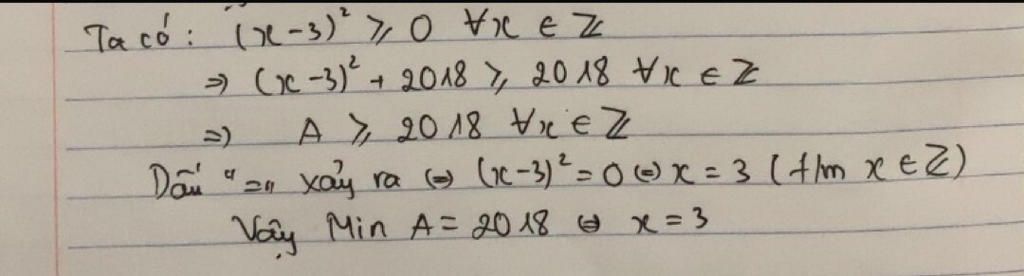 Ta có: (x-3)² ⩾ 0 ∀x ∈ ℤ
⇒ (x-3)² + 2018 ⩾ 2018 ∀x ∈ ℤ
⇒) A ⩾ 2018 ∀x ∈ ℤ
Dấu "=" xảy ra ⇔ (x-3)² = 0 ⇔ x = 3 (t/m x ∈ ℤ)
Vậy Min A = 2018 ⇔ x = 3